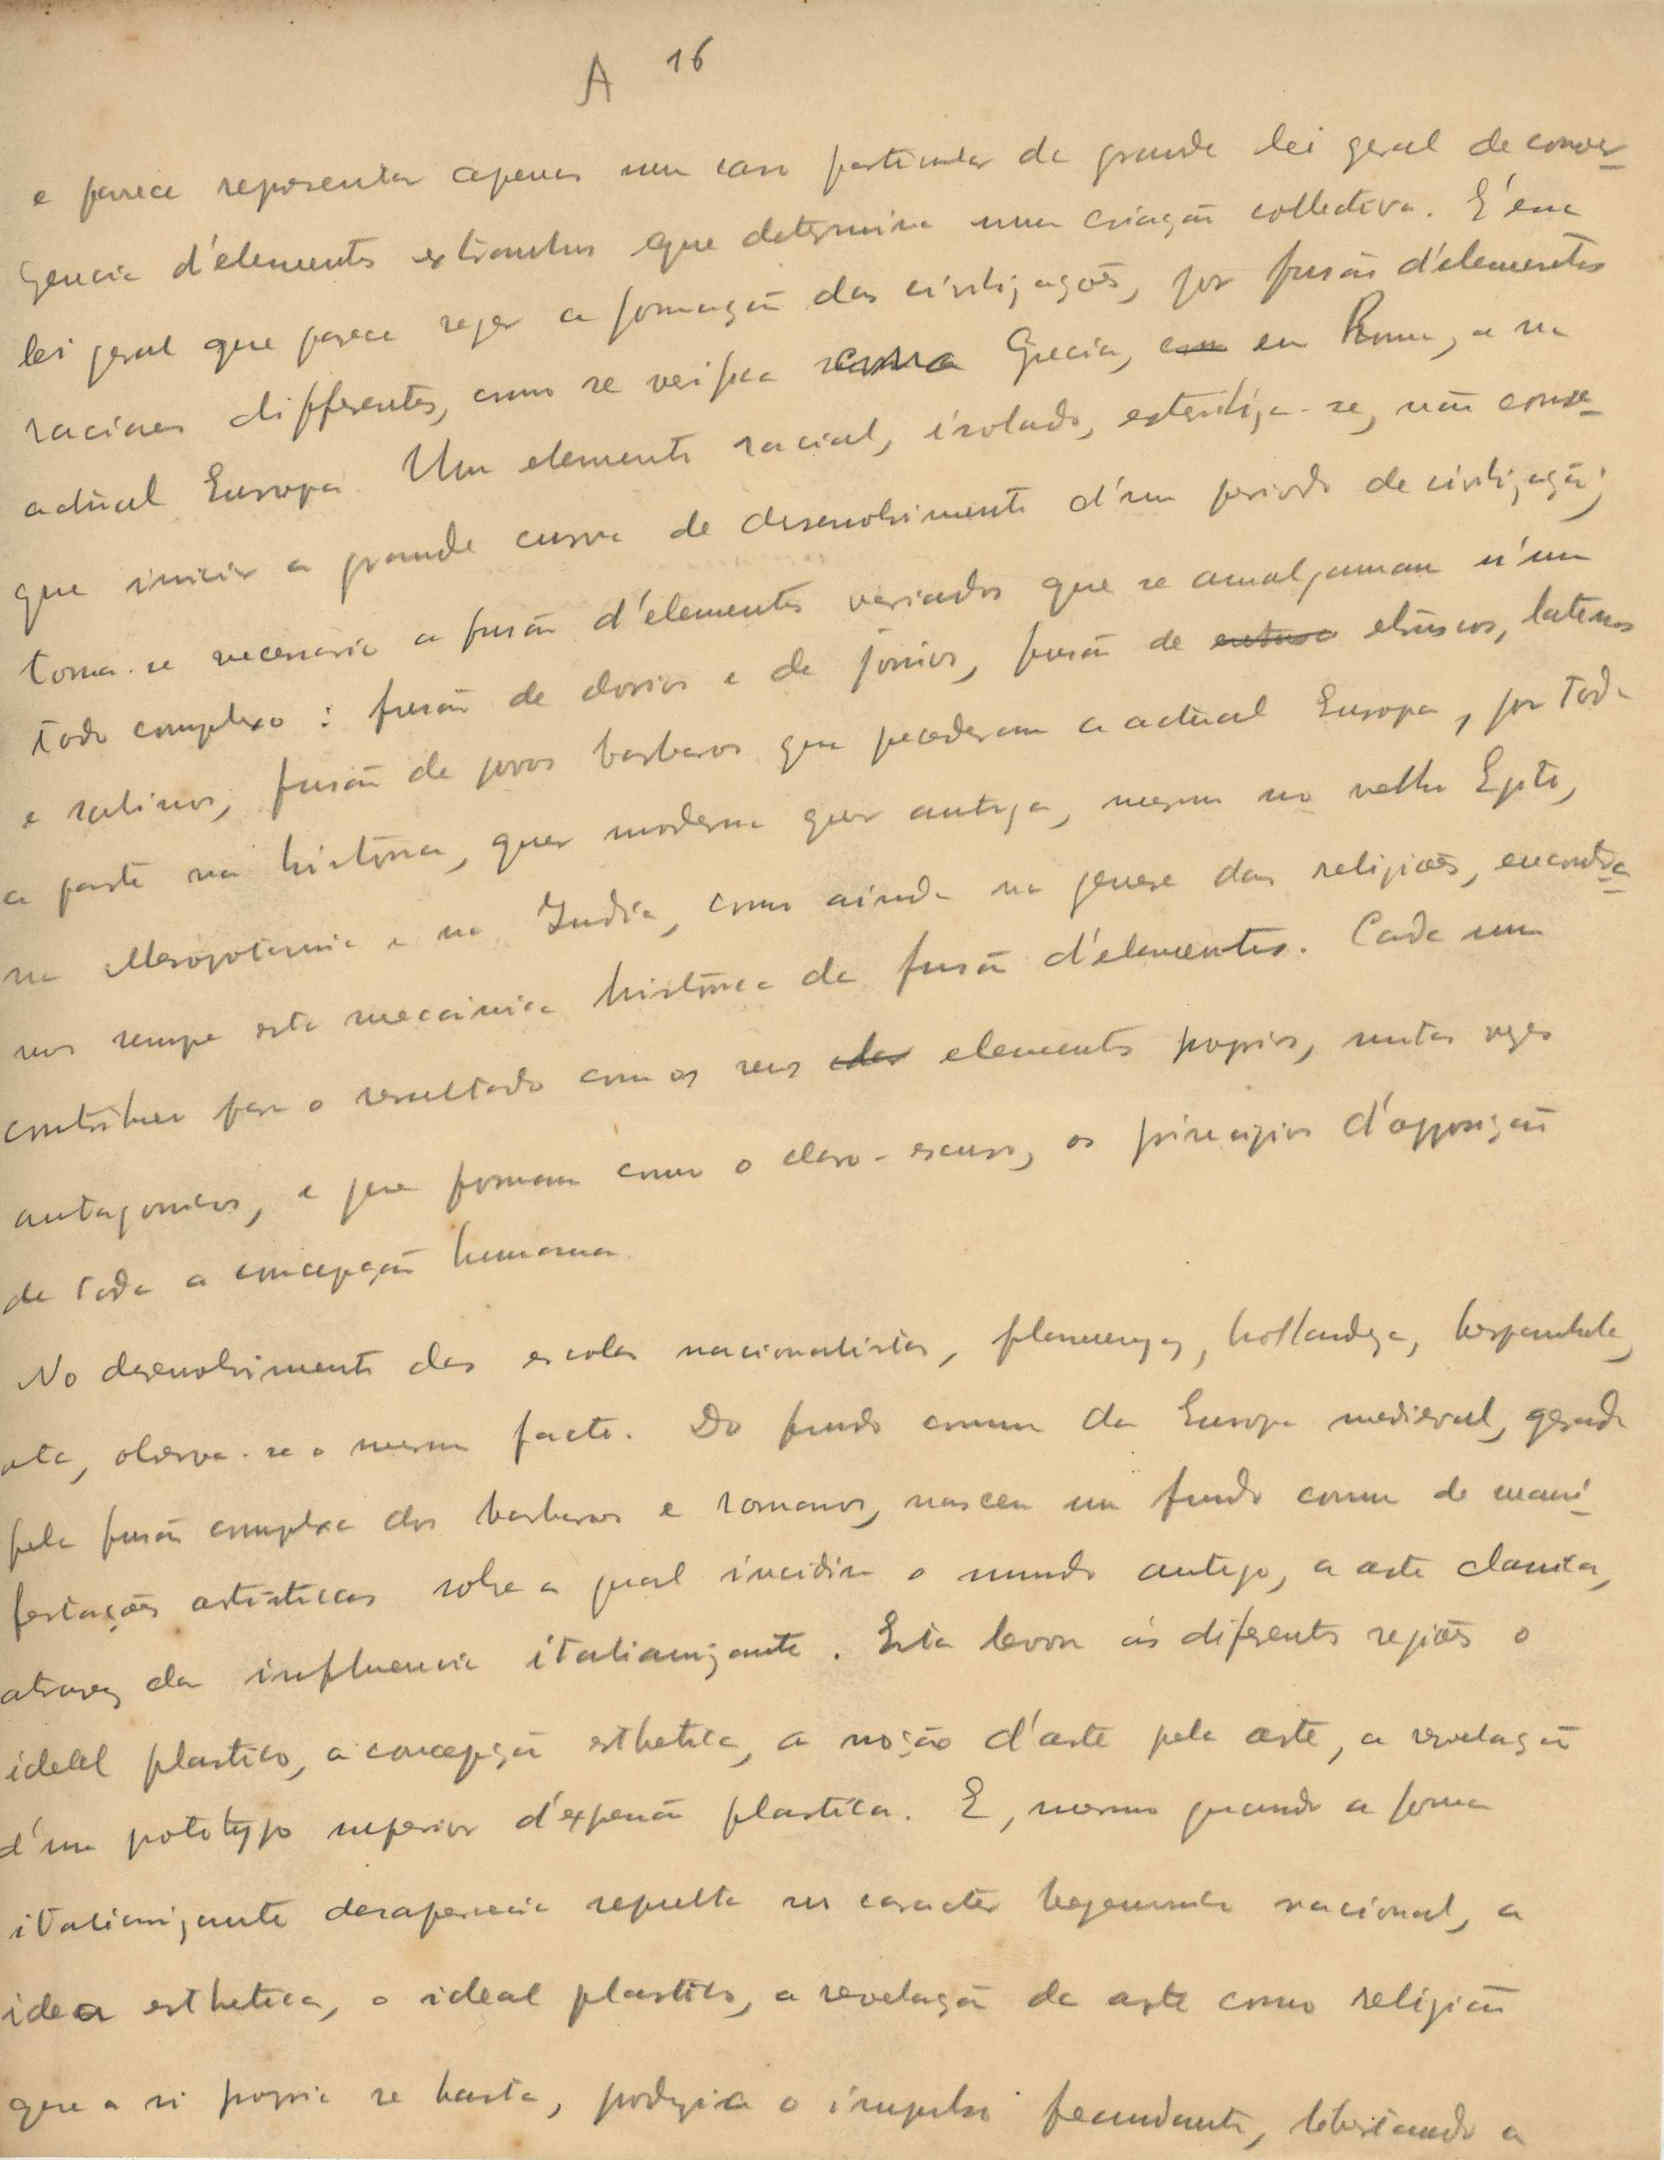 A 16
e parece representar apenas um caso particular da grande lei geral de conver-
gencia d'elementos extranhos que determina uma criação collectiva. É essa
lei geral que parece reger a formação das civilizações, por fusão d'elementos
raciaes differentes, como se verifica na Grecia, em Roma, e na
actual Europa. Um elemento racial, isolado, esteriliza-se, não conse-
gue iniciar a grande curva de desenvolvimento d'um periodo de civilização;
torna-se necessario a fusão d'elementos variados que se amalgamam n'um
todo complexo: fusão de dorios e de jonios, fusão de etruscos, latinos
e sabinos, fusão de povos barbaros que precederam a actual Europa, por toda
a parte na historia, quer moderna quer antiga, mesmo no velho Egito,
na Mesopotamia e na India, como ainda na genese das religiões, encontra-
mos sempre esta mecanica historica da fusão d'elementos. Cada um
contribue para o resultado com os seus elementos proprios, muitas vezes
antagonicos, e que formam como o claro-escuro, os principios d'opposição
de toda a concepção humana.
No desenvolvimento das escolas nacionalistas, flamenga, hollandeza, hespanhola,
etc, observa-se o mesmo facto. Do fundo comum da Europa medieval, gerada
pela fusão complexa dos barbaros e romanos, nasceu um fundo comum de mani-
festações artisticas sobre a qual incidiu o mundo antigo, a arte classica,
atravez da influencia italianizante. Esta levou ás diferentes regiões o
ideal plastico, a concepção esthetica, a noção d'arte pela arte, a revelação
d'um prototypo superior d'expressão plastica. E, mesmo quando a forma
italianizante desaparecia sepulta no caracter nacional, a
idea esthetica, o ideal plastico, a revelação da arte como religião
que a si propria se basta, produzia o impulso fecundante, libertando a